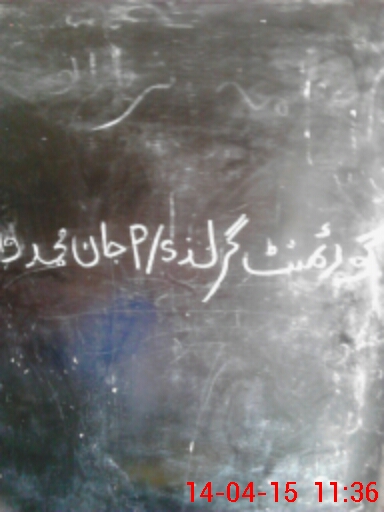 گورنمنٹ گرلز P/S جان محمد
14-04-15 11:36